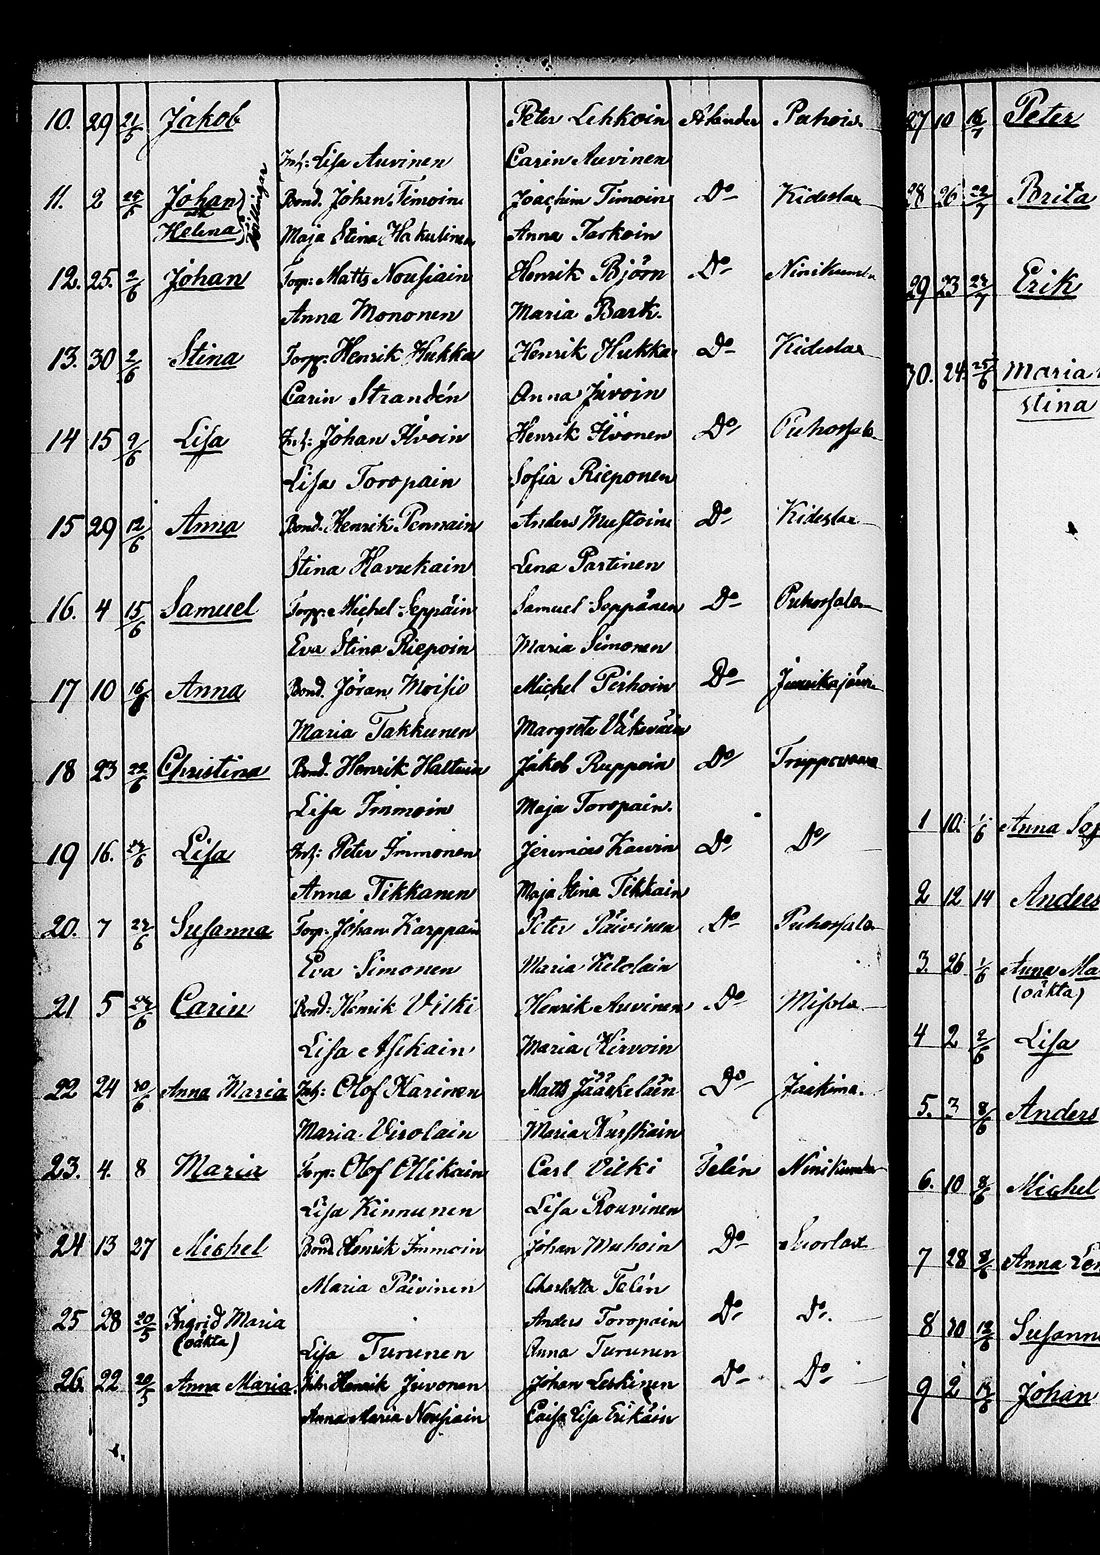 10. 29 21/5 Jakob Peter Lehkoin Alander Puhois
Inh: Lisa Auvinen Carin Auvinen
11. 2 25/5 Johan Bond. Johan Timoin Joachim Timoin Do Kideslax
och
Helena Tvillingar Maja Stina Hakulinen Anna Tarkoin
12. 25. 2/6 Johan Torp: Matts Nousiain Henrik Björn Do Ninikum
Anna Mononen Maria Bark.
13. 30 2/6 Stina Torp: Henrik Hukka Henrik Hukka Do Kideslax
Carin Strandén Anna Juvoin
14 15 9/6 Lisa Inh: Johan Ilvoin Henrik Ilvonen Do Puhossala
Lisa Toropain Sofia Rieponen
15 29 12/6 Anna Bond. Henrik Pennain Anders Mustoin Do Kideslax
Stina Havukain Lena Partinen
16. 4 15/6 Samuel Torp: Michel Seppäin Samuel Seppänen Do Puhossala
Eva Stina Riepoin Maria Simonen
17 10 16/6 Anna Bond. Jöran Moisio Michel Pirhoin Do
Maria Takkunen Margreta Väkeväin
18 23 22/6 Christina Bond. Henrik Haltuin Jakob Ruppoin Do Truppovaara
Lisa Immoin Maja Toropain.
19 16. 24/6 Lisa Inh: Peter Immonen Jeremias Kauvin Do Do
Anna Tikkanen Maja Stina Tikkain
20. 7 27/6 Susanna Torp. Johan Karppain Peter Päivinen Do Puhossala
Eva Simonen Maria Kitolain
21 5 24/6 Carin Bond: Henrik Vilki Henrik Auvinen Do Misola
Lisa Asikain Maria Hirvoin
22 24 30/6 Anna Maria Inh: Olof Karinen Matts Jääskeläin Do Jaakima.
Maria Virolain Maria Kurskain
23. 4. 8 Maria Torp: Olof Ollikain Carl Vilki Telén Ninikumbu
Lisa Kinnunen Lisa Rouvinen
24 13 27 Michel Bond Henrik Immoin Johan Muhoin Do Suorlax
Maria Päivinen Charlotta Telén
25 28 20/5 Ingrid Maria Anders Toropain Do Do.
(oäkta) Lisa Turunen Anna Turunen
26. 22 20/5 Anna Maria Inh: Henrik Juvonen Johan Leskinen Do Do
Anna Maria Nousiain Caisa Lisa Erikäin
27 10 16/7 Peter
28 26 22/7 Brita
29 23 24/7 Erik
30. 24 25/6 Maria
Stina
1 10. 1/6 Anna Sop
2 12 14 Anders
3. 26 1/6 Anna Ma
(oäkta)
4 2 2/6 Lisa
5. 3 8/6 Anders
6. 10 8/6 Michel
7 28 8/6 Anna Len
8 30 12/6 Susann
9 2 14/6 Johan